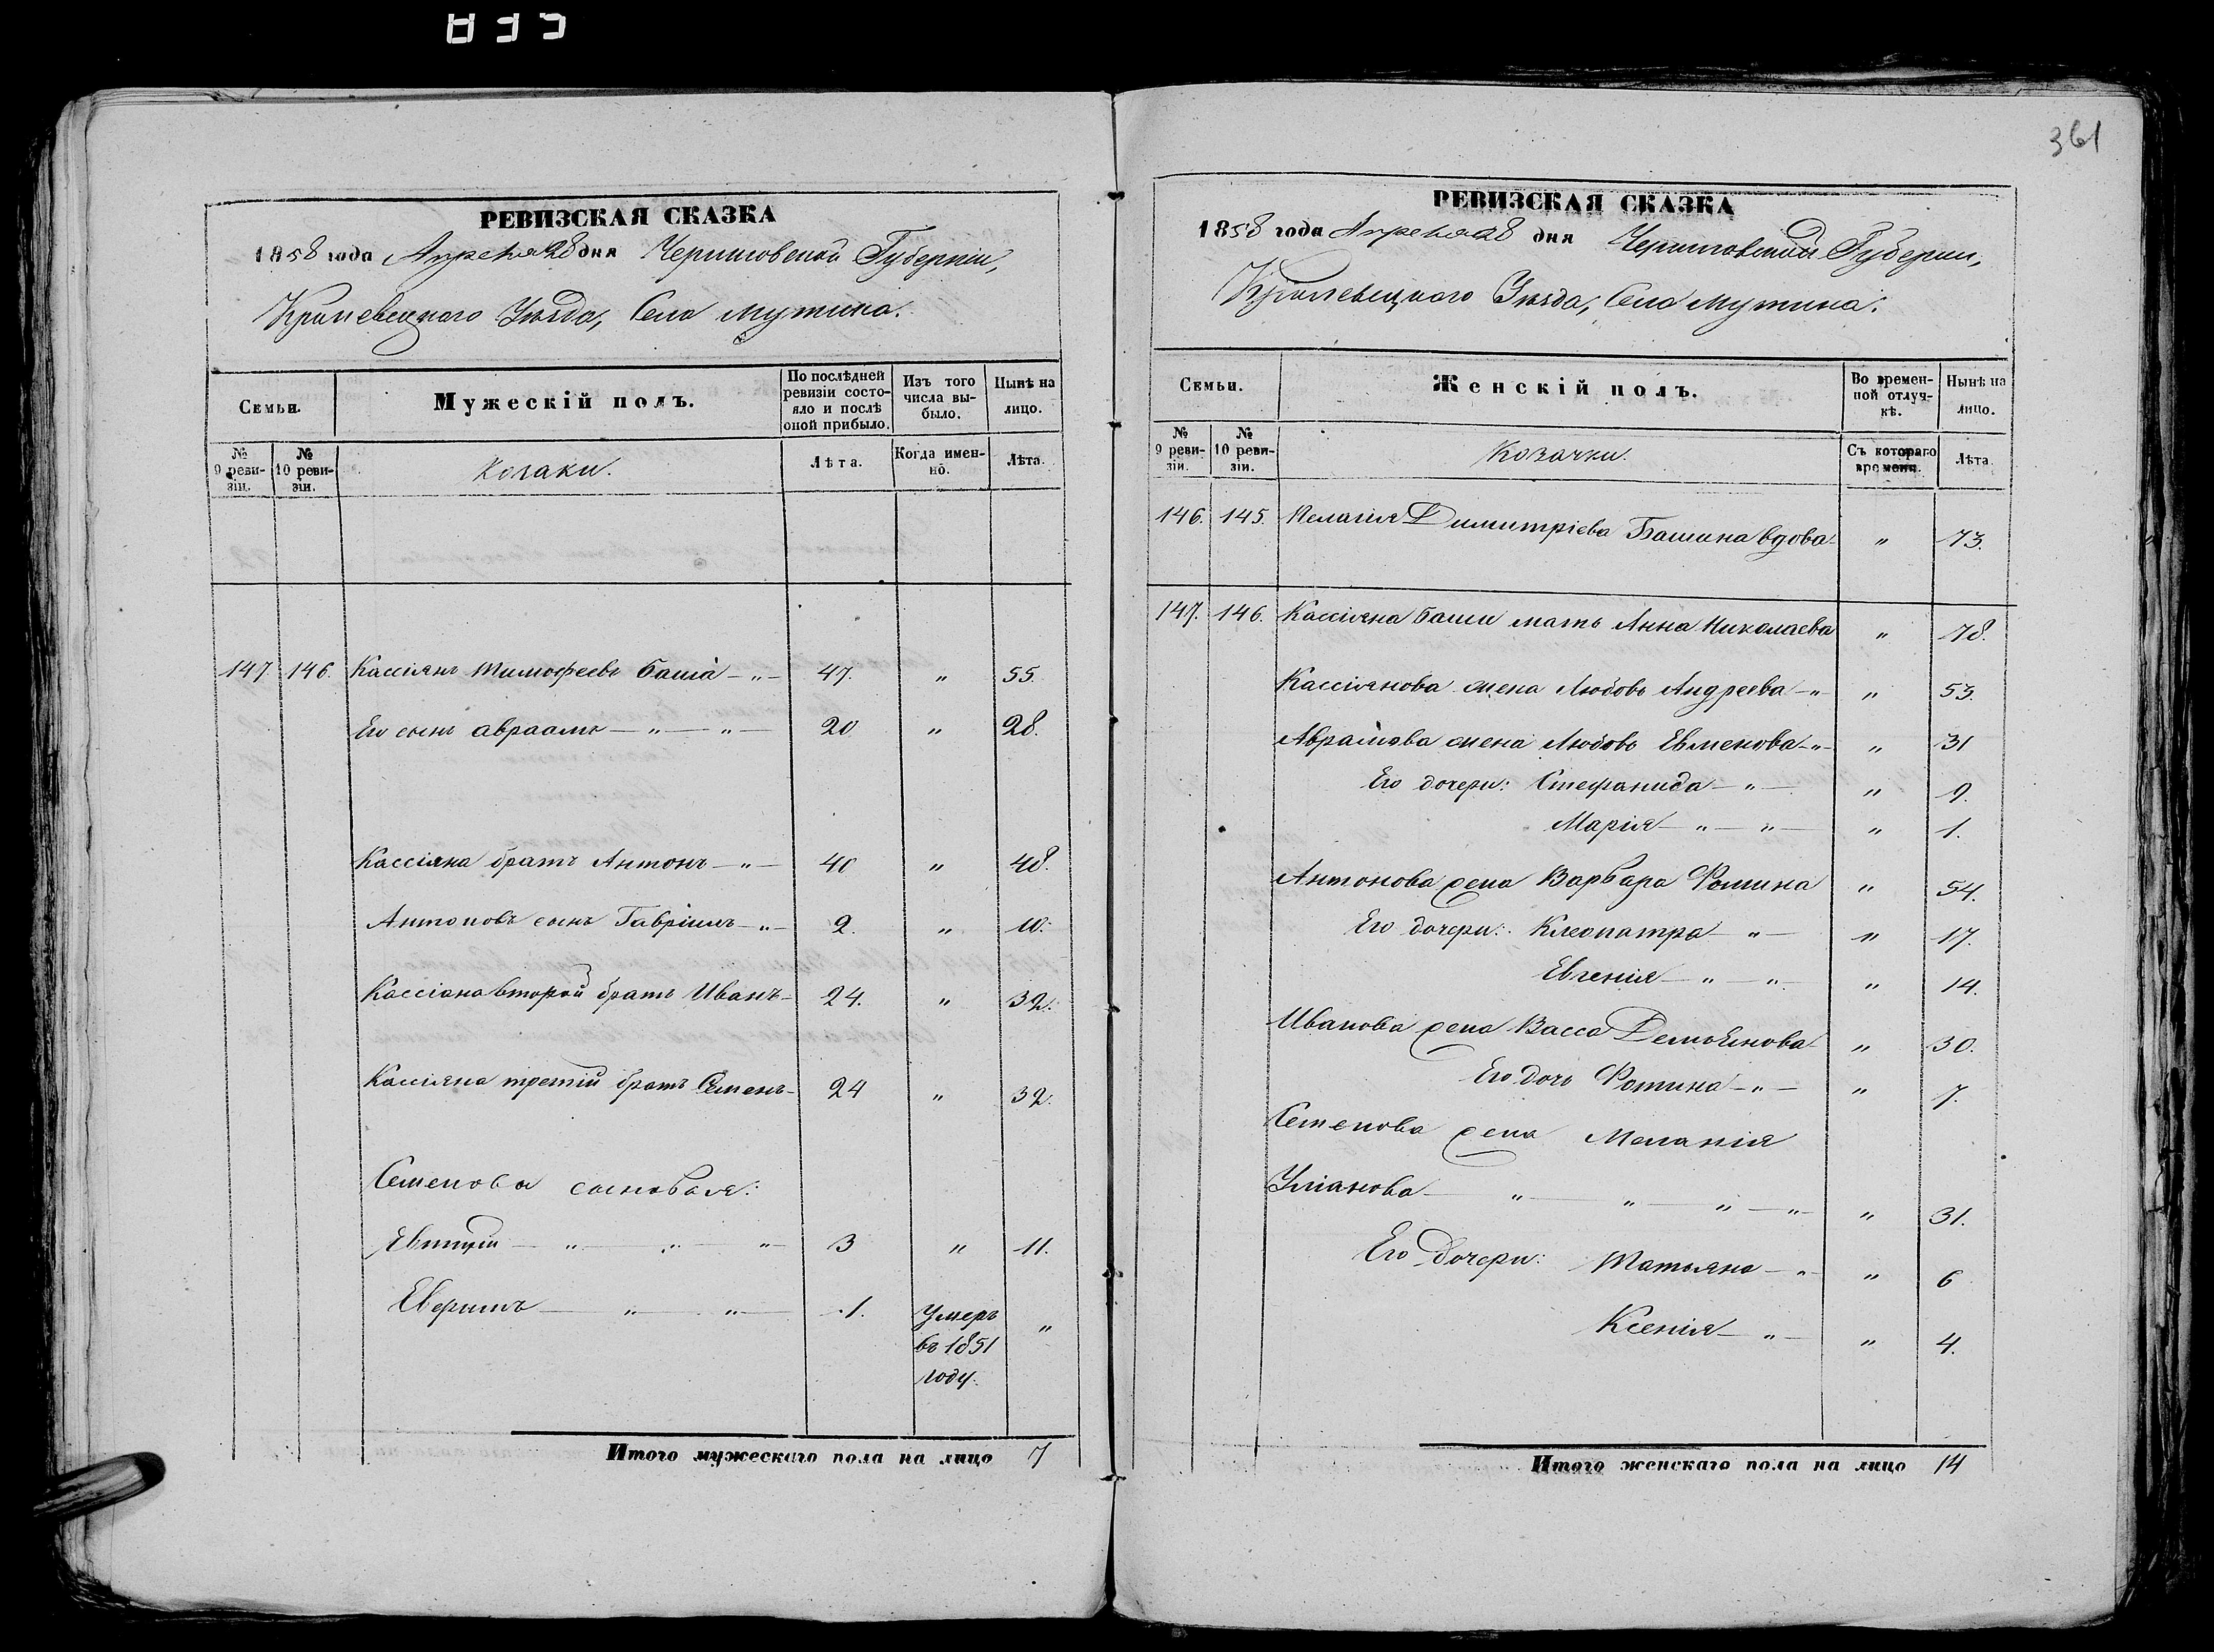 361
РЕВИЗСКАЯ СКАЗКА
1858 года Апреля 28 дня Черниговской Губерніи,
Кролевецкаго Уѣзда, Села Мутина.
Семьи.
Мужескій полъ.
По послѣдней ревизіи состояло и послѣ оной прибыло.
Изъ того числа выбыло.
Нынѣ на лицо.
№ 9 ревизіи.
№ 10 ревизіи.
Козаки.
Лѣта.
Когда именно.
Лѣта.
147. 146. Кассіянъ Тимофеевъ Баша — „ — 47. „ 55.
Его сынъ Авраамъ — „ — „ — 20 „ 28.
Кассіяна братъ Антонъ — „ — 40 „ 48.
Антоновъ сынъ Гавріилъ — „ — 2. „ 10.
Кассіана второй братъ Иванъ — 24. „ 32.
Кассіяна третій братъ Семенъ — 24 „ 32.
Семеновы сыновья:
Евтихій — „ — „ — „ — 3 „ 11.
— „ — „ — 1. Умеръ въ 1851 году. „
Итого мужескаго пола на лицо 7
РЕВИЗСКАЯ СКАЗКА
1858 года Апреля 28 дня Черниговской Губерніи,
Кролевецкаго Уѣзда, Села Мутина.
Семьи.
Женскій полъ.
Во временной отлучкѣ.
Нынѣ на лицо.
№ 9 ревизіи.
№ 10 ревизіи.
Козачки.
Съ котораго времени.
Лѣта.
146. 145. Пелагія Димитріева Башина вдова — „ 73.
147. 146. Кассіяна Баши мать Анна Николаева „ 78.
Кассіянова жена Любовь Андреева — „ „ 53.
Авраамова жена Любовь Евменова — „ — „ 31
Его дочери: Стефанида — „ — „ 9.
Марія — „ — „ — „ 1.
Антонова жена Варвара Фомина „ 54.
Его дочери: Клеопатра — „ — „ 17.
Евгенія — „ — „ — „ 14.
Иванова жена Васса Демьянова — „ 30.
Его дочь Фотина — „ — „ 7.
Семенова жена Меланія
Уліанова — „ — „ — „ — „ — „ 31.
Его дочери: Татьяна — „ — „ 6
Ксенія — „ — „ 4.
Итого женскаго пола на лицо 14